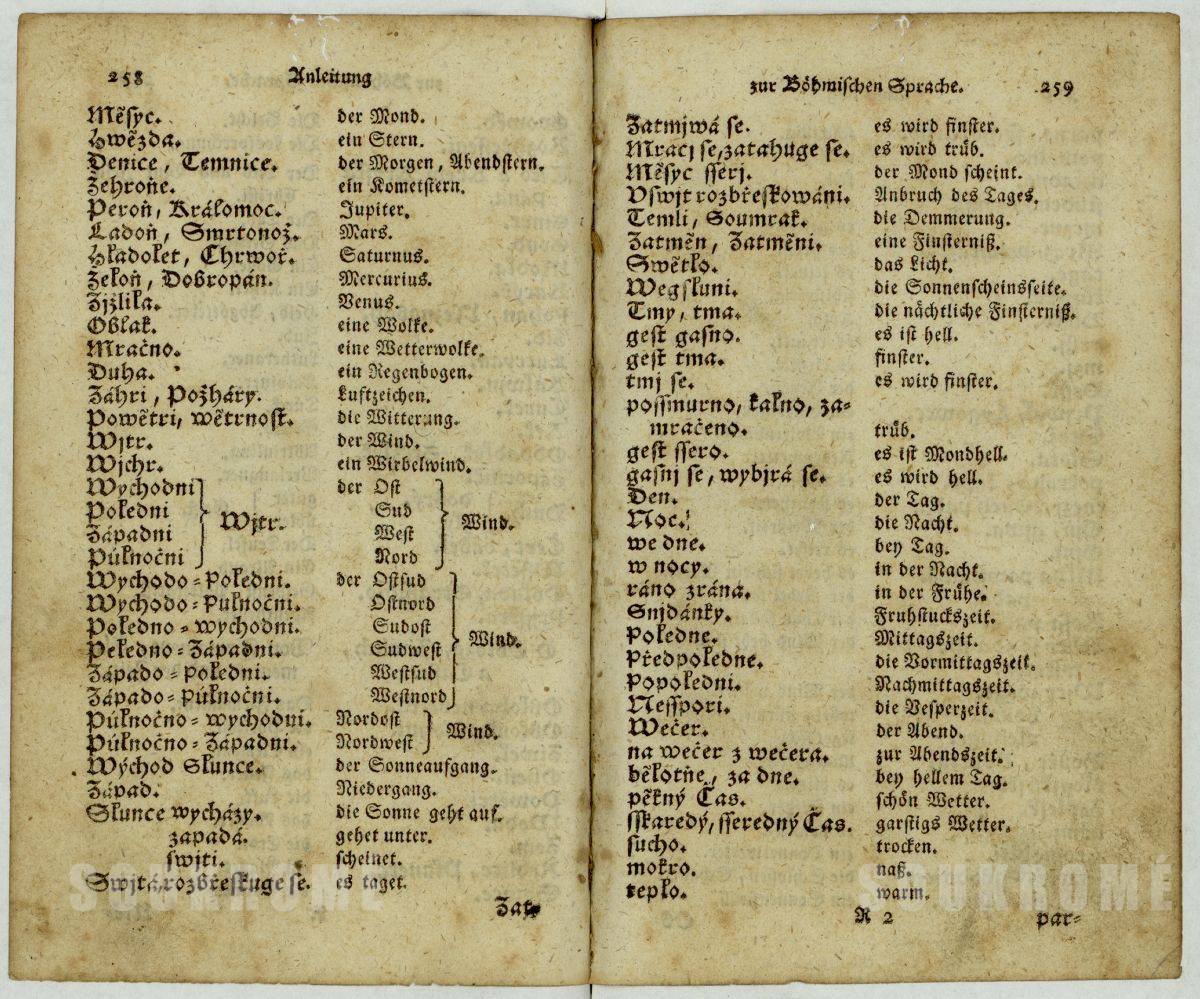 258 Anleitung
Měsyc. der Mond.
Hwězda. ein Stern.
Denice, Temnice. der Morgen, Abendstern.
Žehroňe. ein Kometstern.
Peroň, Králomoc. Jupiter.
Ladoň, Smrtonož. Mars.
Hladolet, Chrwoř. Saturnus.
Želoň, Dobropán. Mercurius.
Zjžlila. Venus.
Oblak. eine Wolke.
Mračno. eine Wetterwolke.
Duha. ein Regenbogen.
Záhri, Požháry. Luftzeichen.
Powětri, wětrnost. die Witterung.
Wjtr. der Wind.
Wjchr. ein Wirbelwind.
Wychodni der Ost
Poledni Sud
Wjtr. Wind.
Západni West
Půlnočni Nord
Wychodo-poledni. der Ostsud
Wychodo-pulnočni. Ostnord
Poledno-wychodni. Sudost
Peledno-Západni. Sudwest Wind.
Západo-poledni. Westsud
Západo-půlnočni. Westnord
Půlnočno-wychodni. Nordost
Půlnočno-Západni. Nordwest Wind.
Wýchod Slunce. der Sonneaufgang.
Západ. Niedergang.
Slunce wycházy. die Sonne geht auf.
zapadá. gehet unter.
swjti. scheinet.
Swjtá, rozbřeskuge se. es taget.
Zat-
zur Böhmischen Sprache. 259
Zatmjwá se. es wird finster.
Mracj se, zatahuge se. es wird trüb.
Měsyc sserj. der Mond scheint.
Vswjt rozbřeskowáni. Anbruch des Tages.
Temli, Soumrak. die Demmerung.
Zatměn, Zatměni. eine Finsterniß.
Swětlo. das Licht.
Wegsluni. die Sonnenscheinsseite.
Tmy, tma. die nächtliche Finsterniß.
gest gasno. es ist hell.
gest tma. finster.
tmj se. es wird finster.
possmurno, kalno, za-
mračeno. trüb.
gest ssero. es ist Mondhell.
gasnj se, wybjrá se. es wird hell.
Den. der Tag.
Noc. die Nacht.
we dne. bey Tag.
w nocy. in der Nacht.
ráno zrána. in der Frühe.
Snjdánky. Fruhstuckszeit.
Poledne. Mittagszeit.
Předpoledne. die Vormittagszeit.
Popoledni. Nachmittagszeit.
Nesspori. die Vesperzeit.
Wečer. der Abend.
na wečer z wečera. zur Abendszeit.
bělotňe, za dne. bey hellem Tag.
pěkný Čas. schön Wetter.
sskaredý, sseredný Čas. garstigs Wetter.
sucho. trocken.
mokro. naß.
teplo. warm.
R 2 par-
SOUKROMÉ
SOUKROMÉ